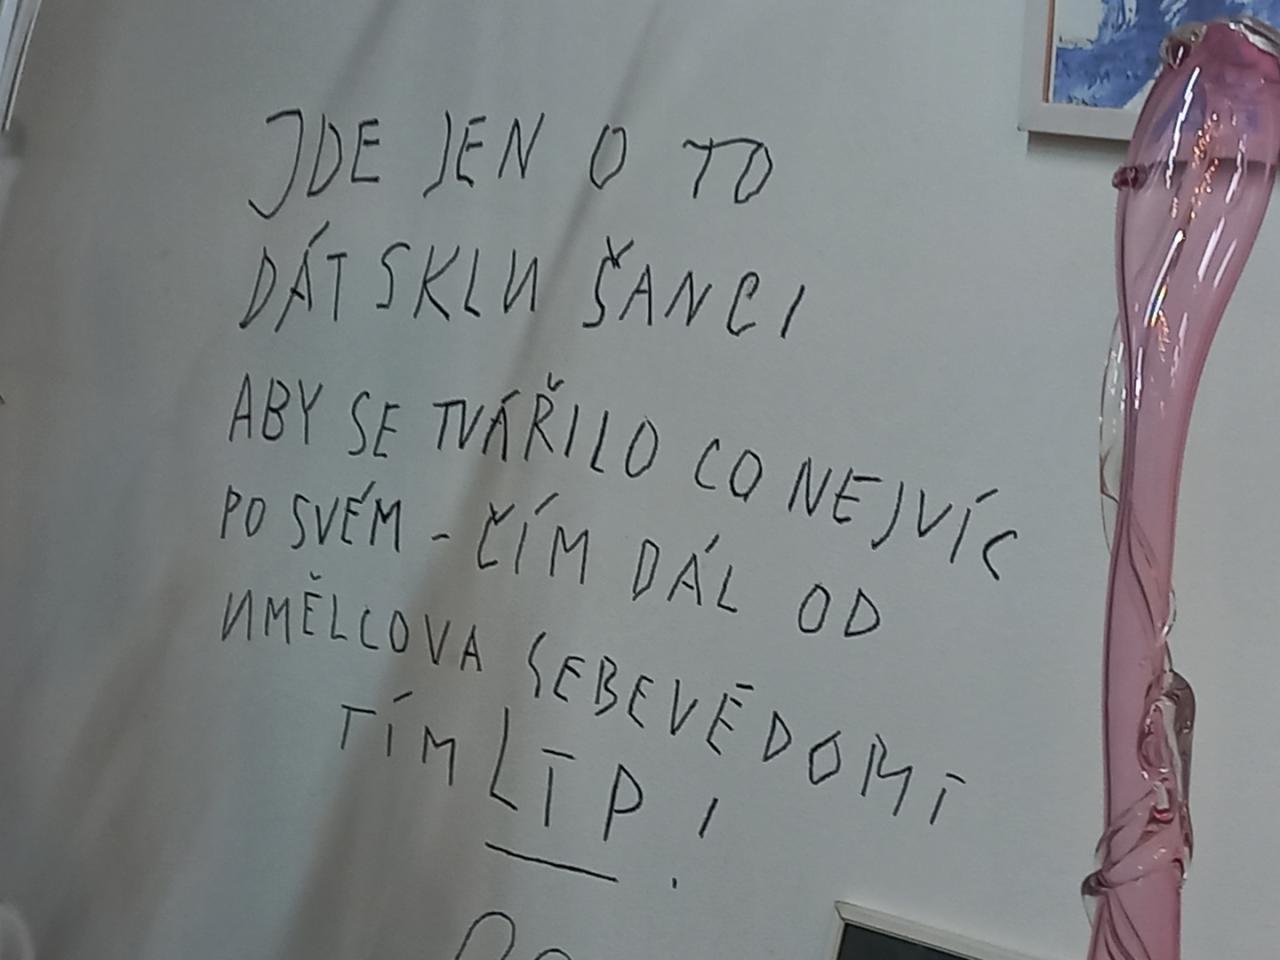 JDE JEN O TO
DÁT SKLU ŠANCI
ABY SE TVÁŘILO CO NEJVÍC
PO SVÉM - ČÍM DÁL OD
UMĚLCOVA SEBEVĚDOMÍ
TÍM LÍP!